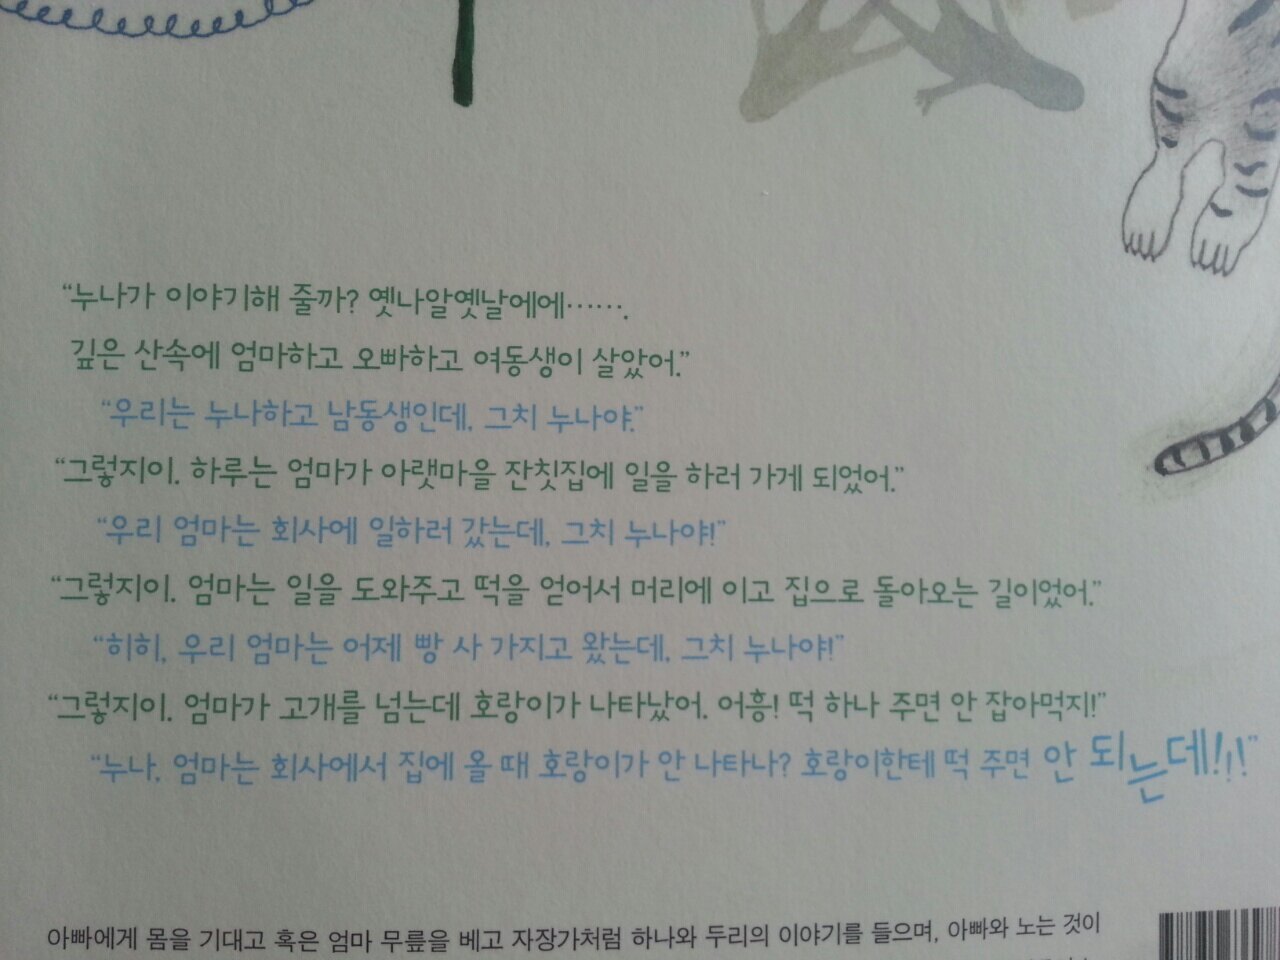 “누나가 이야기해 줄까? 옛나알옛날에에…….
깊은 산속에 엄마하고 오빠하고 여동생이 살았어.”
“우리는 누나하고 남동생인데, 그치 누나야.”
“그렇지이. 하루는 엄마가 아랫마을 잔칫집에 일을 하러 가게 되었어.”
“우리 엄마는 회사에 일하러 갔는데, 그치 누나야!”
“그렇지이. 엄마는 일을 도와주고 떡을 얻어서 머리에 이고 집으로 돌아오는 길이었어.”
“히히, 우리 엄마는 어제 빵 사 가지고 왔는데, 그치 누나야!”
“그렇지이. 엄마가 고개를 넘는데 호랑이가 나타났어. 어흥! 떡 하나 주면 안 잡아먹지!”
“누나, 엄마는 회사에서 집에 올 때 호랑이가 안 나타나? 호랑이한테 떡 주면 안 되는데!!!”
아빠에게 몸을 기대고 혹은 엄마 무릎을 베고 자장가처럼 하나와 두리의 이야기를 들으며, 아빠와 노는 것이